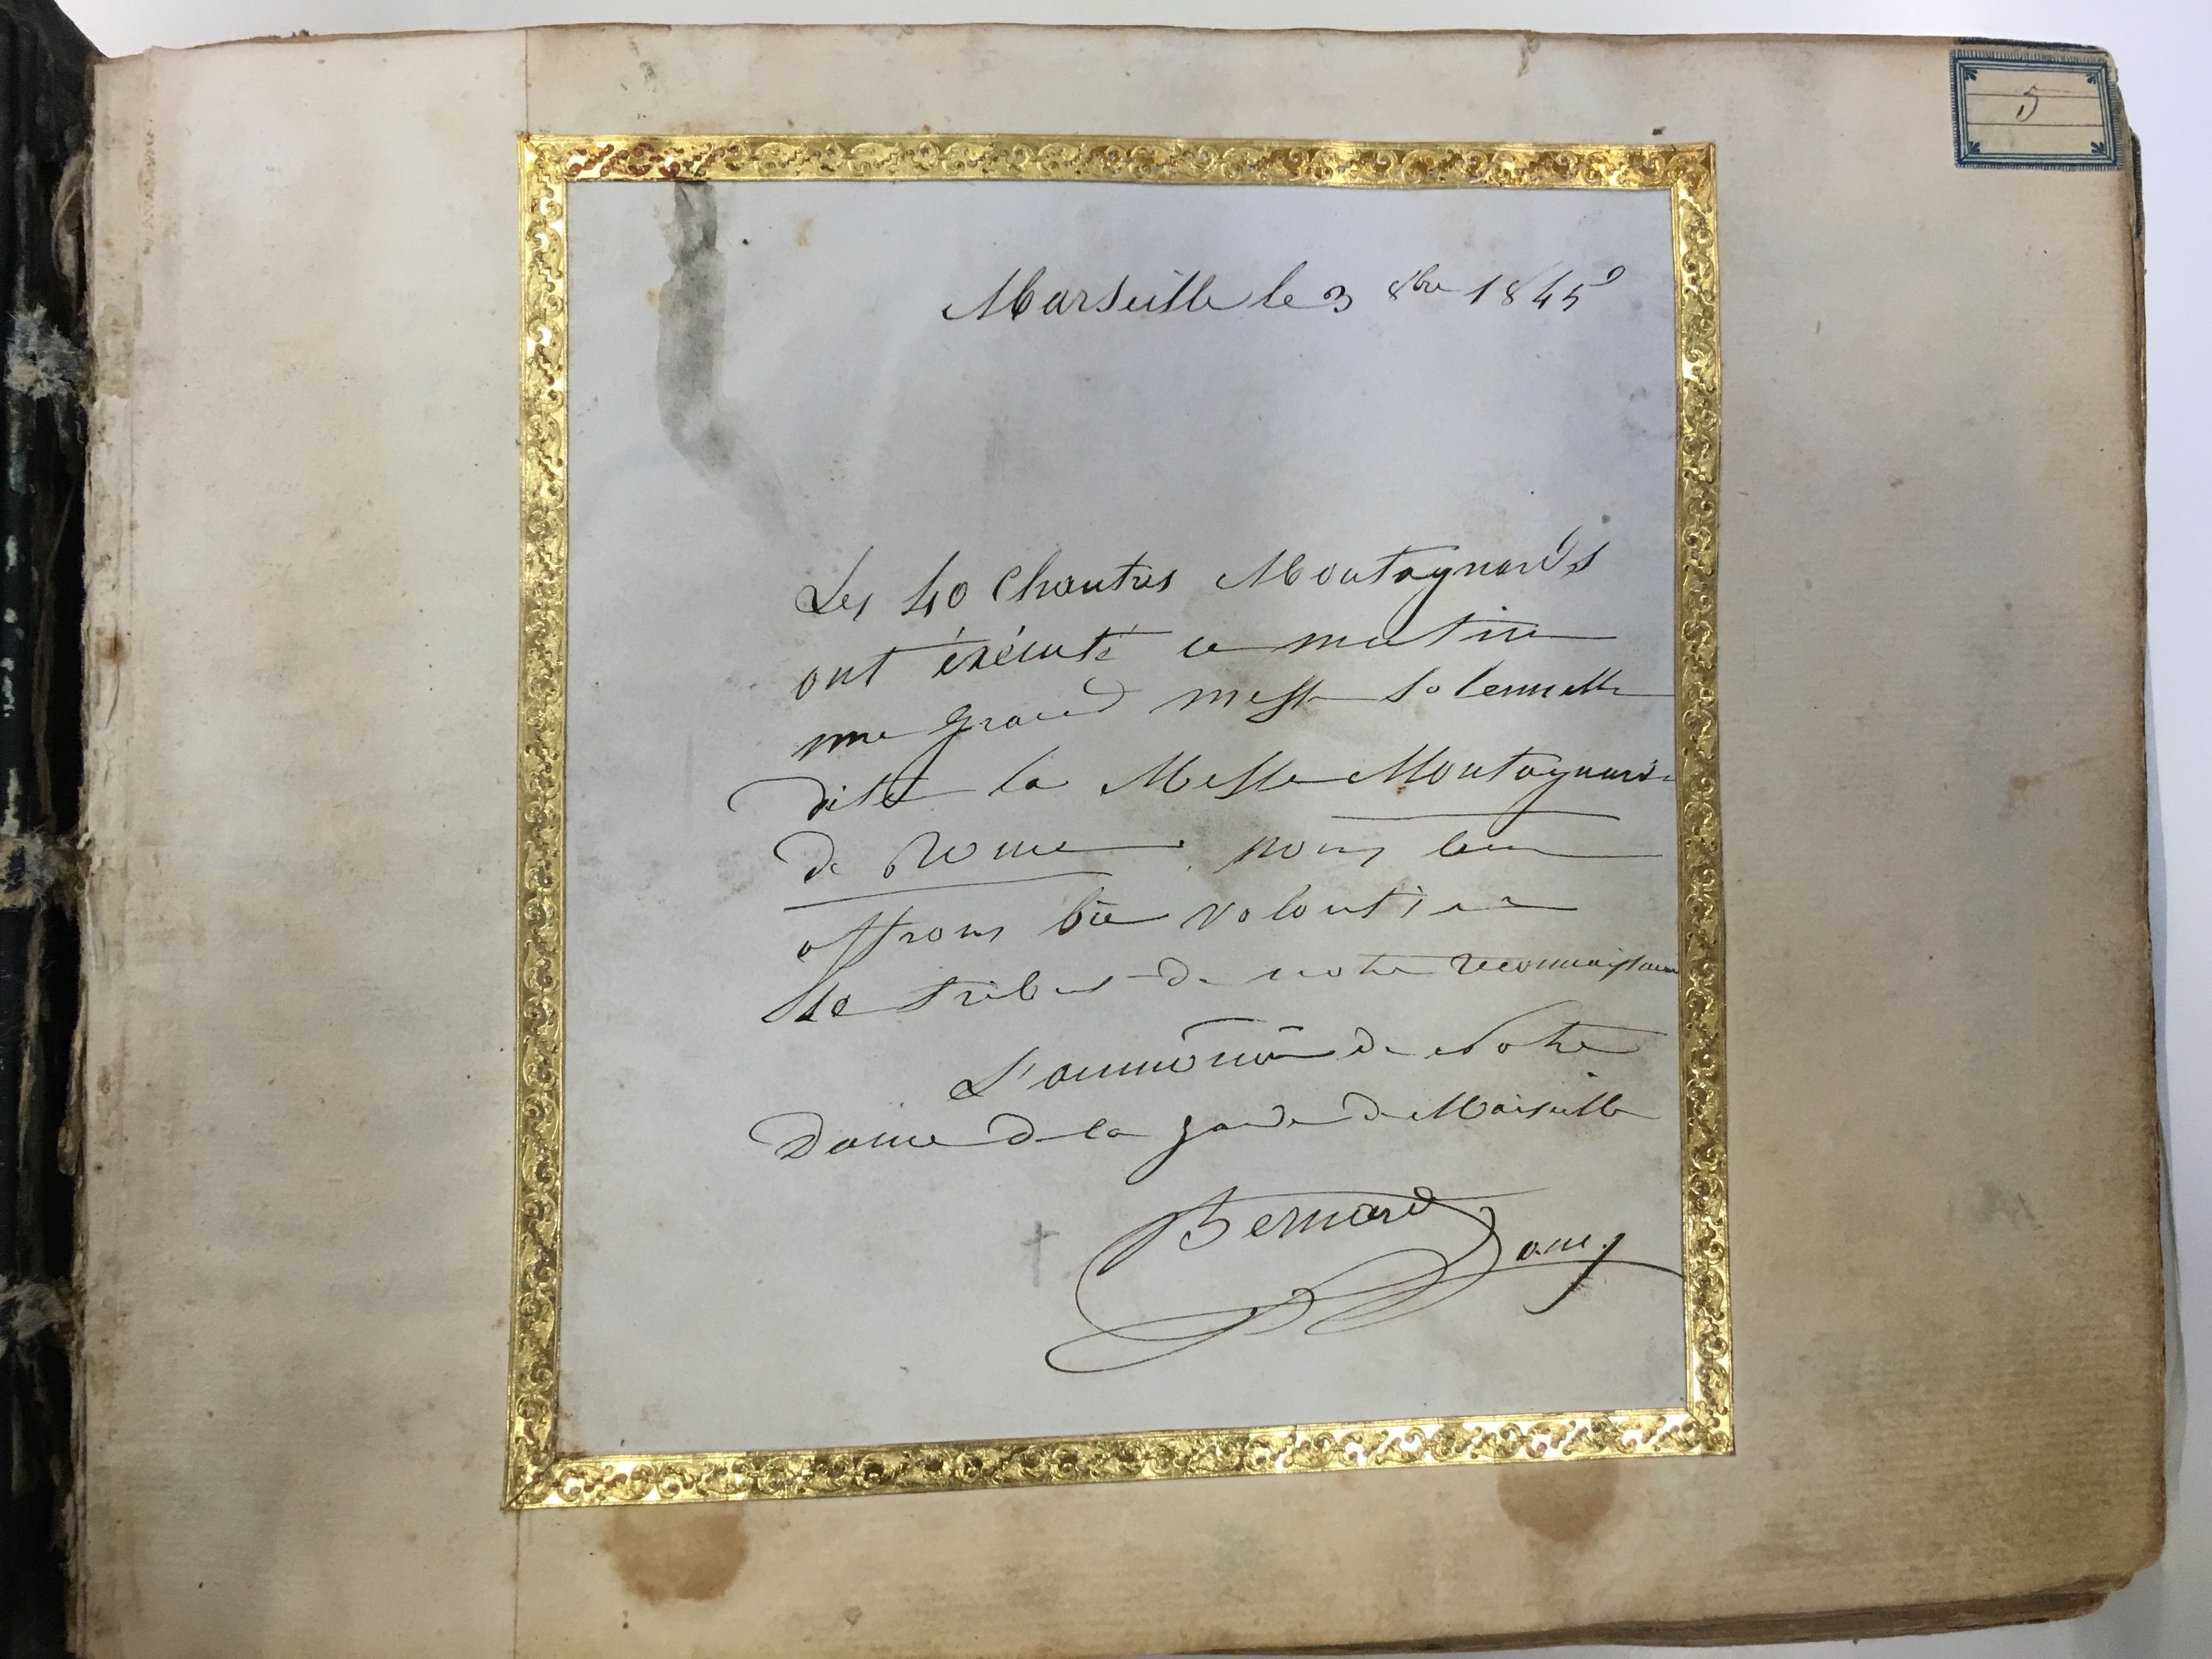 5
Marseille le 3 8bre 1845
Les 40 Chantres Montagnards
ont éxécuté ce matin
une grand messe Solennelle
dite la Messe Montagnarde
de Rome. nous leur
offrons bien volontiers
le tribut de notre reconnaissance
L'aumônier de Notre
Dame de la garde de Marseille
Bernard